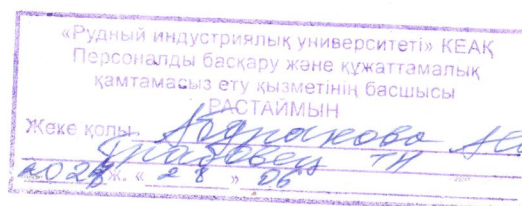 «Рудный индустриялық университеті» КЕАҚ
Персоналды басқару және құжаттамалық
қамтамасыз ету қызметінің басшысы
РАСТАЙМЫН
Жеке қолы
Грабовец ТН
ж. « 28 » 06